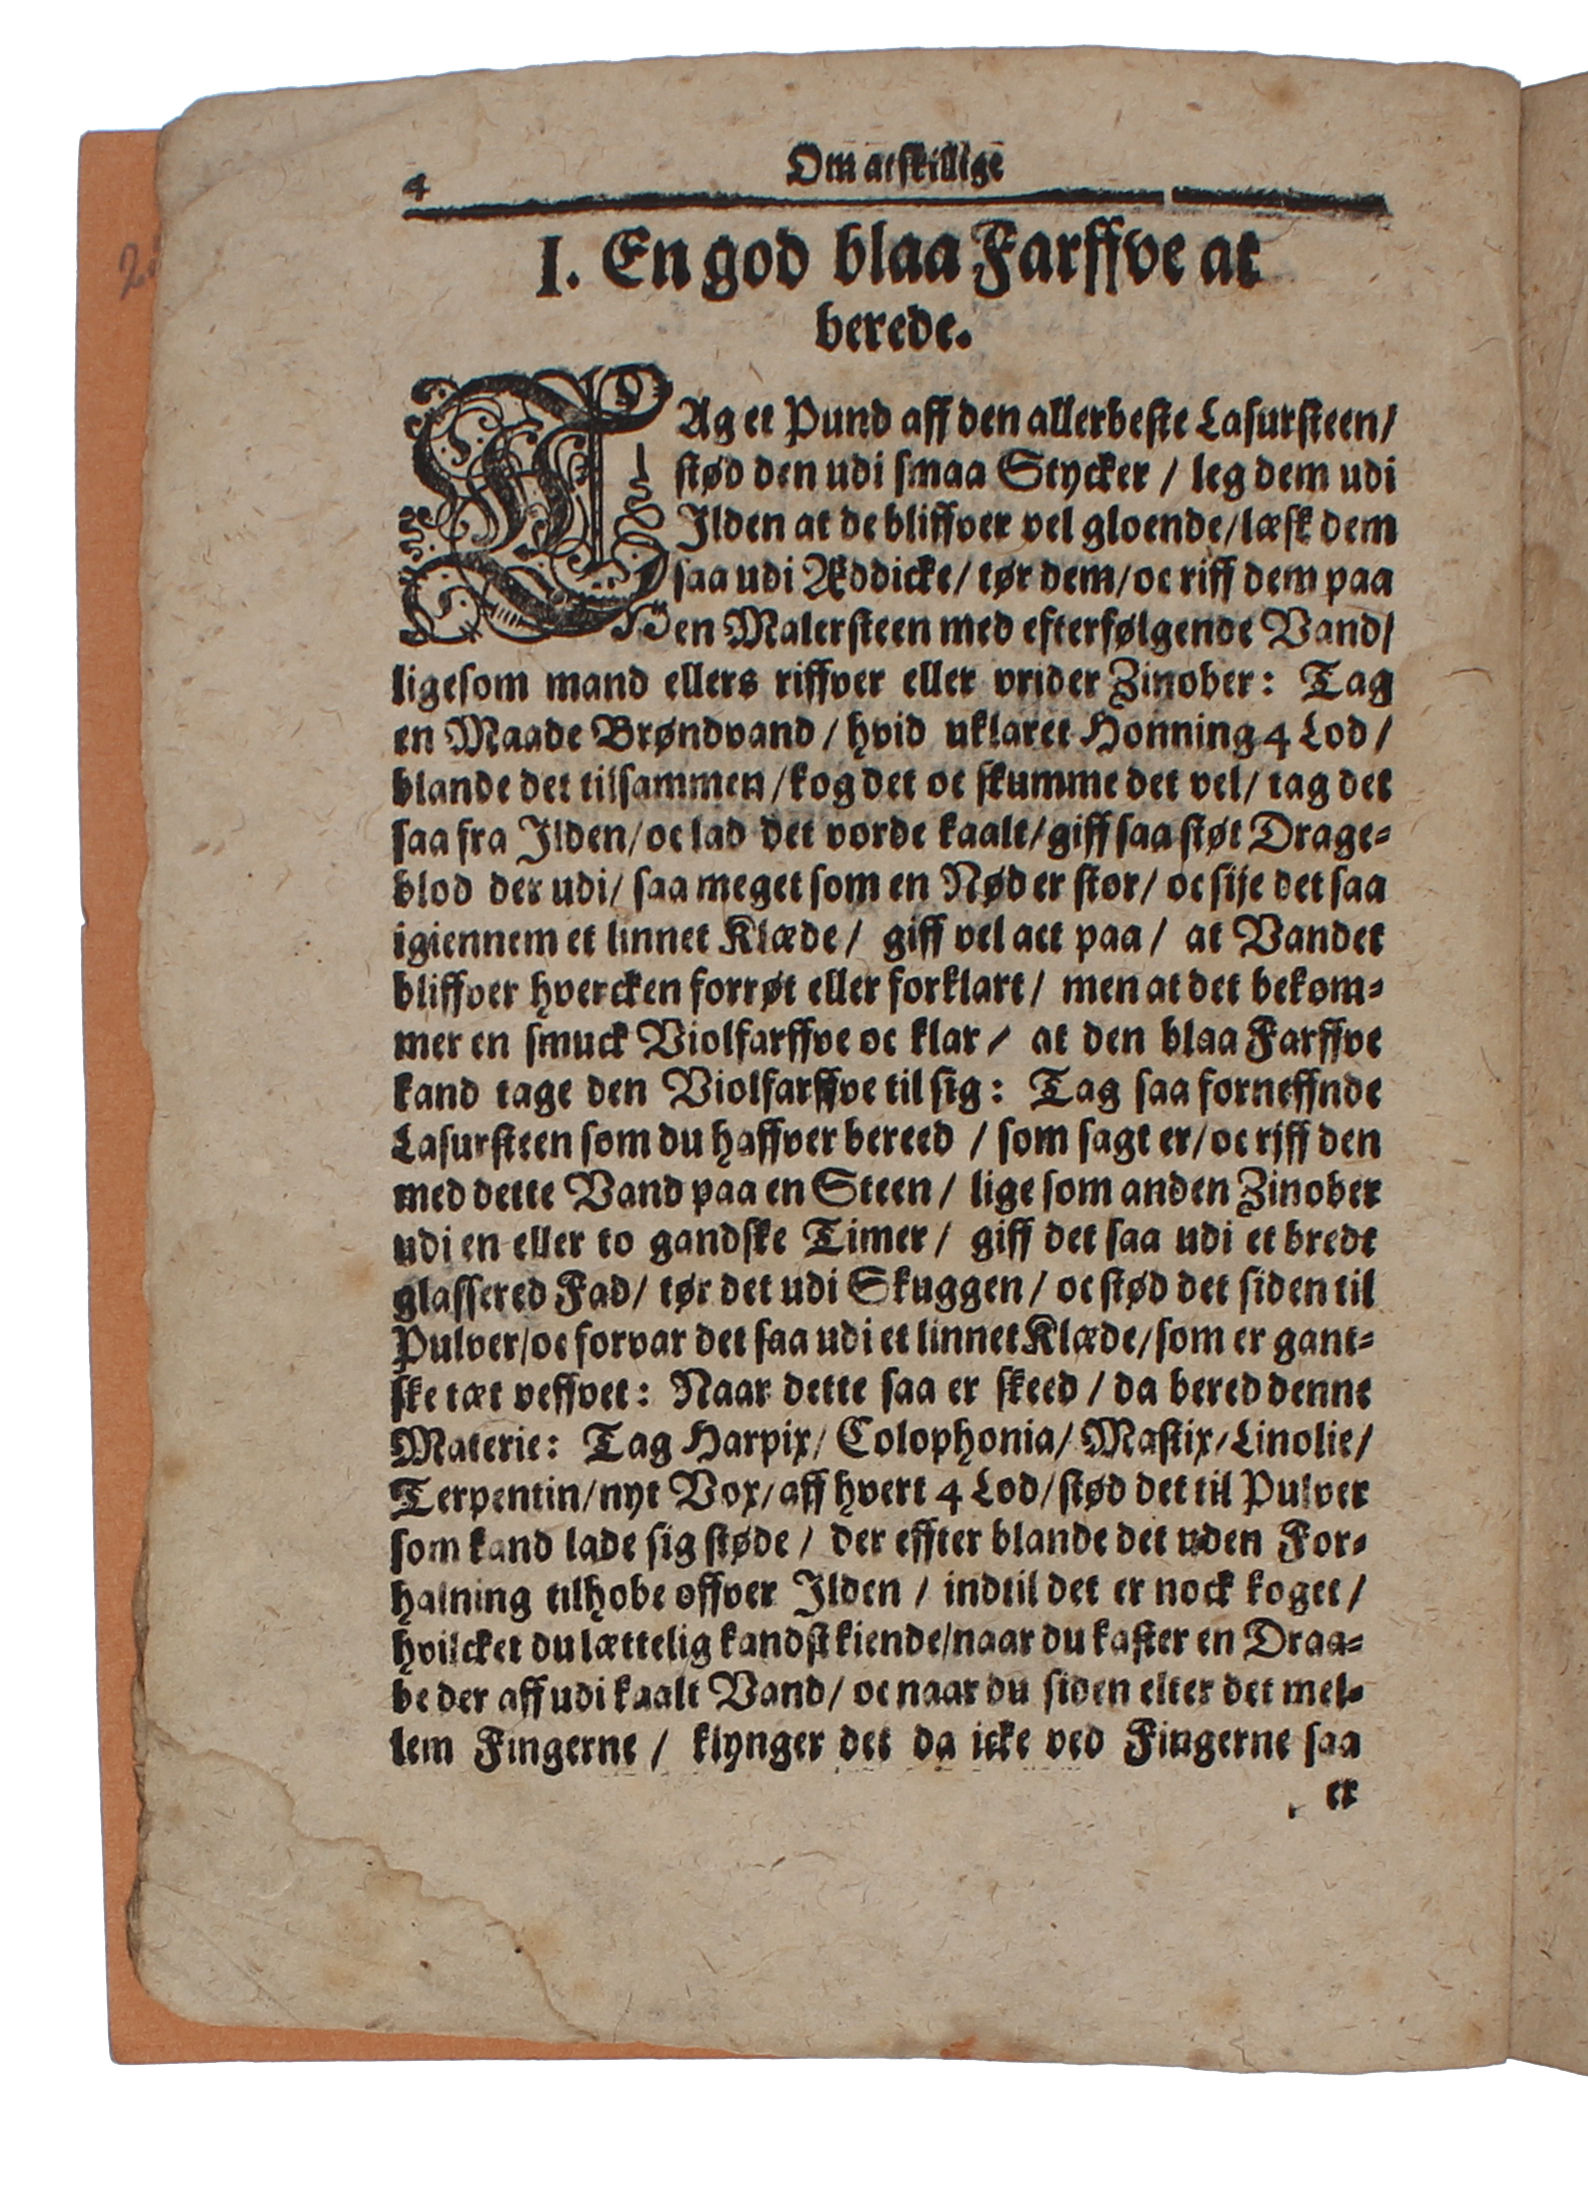 4
Om atskillige
I. En god blaa Farffve at
berede.
TAg et Pund aff den allerbeste Lasursteen/
stød den udi smaa Stycker / leg dem udi
Ilden at de bliffver vel gloende/læsk dem
saa udi Æddicke/ tør dem/oc riff dem paa
en Malersteen med efterfølgende Vand/
ligesom mand ellers riffver eller vrider Zinober: Tag
en Maade Brøndvand / hvid uklaret Honning 4 Lod /
blande det tilsammen/kog det oc skumme det vel/ tag det
saa fra Ilden/oc lad det vorde kaalt/giff saa støt Drage-
blod der udi/ saa meget som en Nød er stor/ oc sije det saa
igiennem et linnet Klæde / giff vel act paa / at Vandet
bliffver hvercken forrøt eller forklart / men at det bekom-
mer en smuck Violfarffve oc klar / at den blaa Farffve
kand tage den Violfarffve til sig: Tag saa forneffnde
Lasursteen som du haffver bereed / som sagt er/oc rjff den
med dette Vand paa en Steen / lige som anden Zinober
udi en eller to gandske Timer / giff det saa udi et bredt
glassered Fad/ tør det udi Skuggen / oc stød det siden til
Pulver/oc forvar det saa udi et linnet Klæde/som er gant-
ske tæt veffvet: Naar dette saa er skeed / da bered denne
Materie: Tag Harpix/ Colophonia/ Mastix/Linolie/
Terpentin/nyt Vox/aff hvert 4 Lod/stød det til Pulver
som kand lade sig støde / der effter blande det uden For-
halning tilhobe offver Ilden / indtil det er nock koget /
hvilcket du lættelig kandst kiende/naar du kaster en Draa-
be der aff udi kaalt Vand/ oc naar du siden elter det mel-
lem Fingerne / klynger det da icke ved Fingerne saa
er